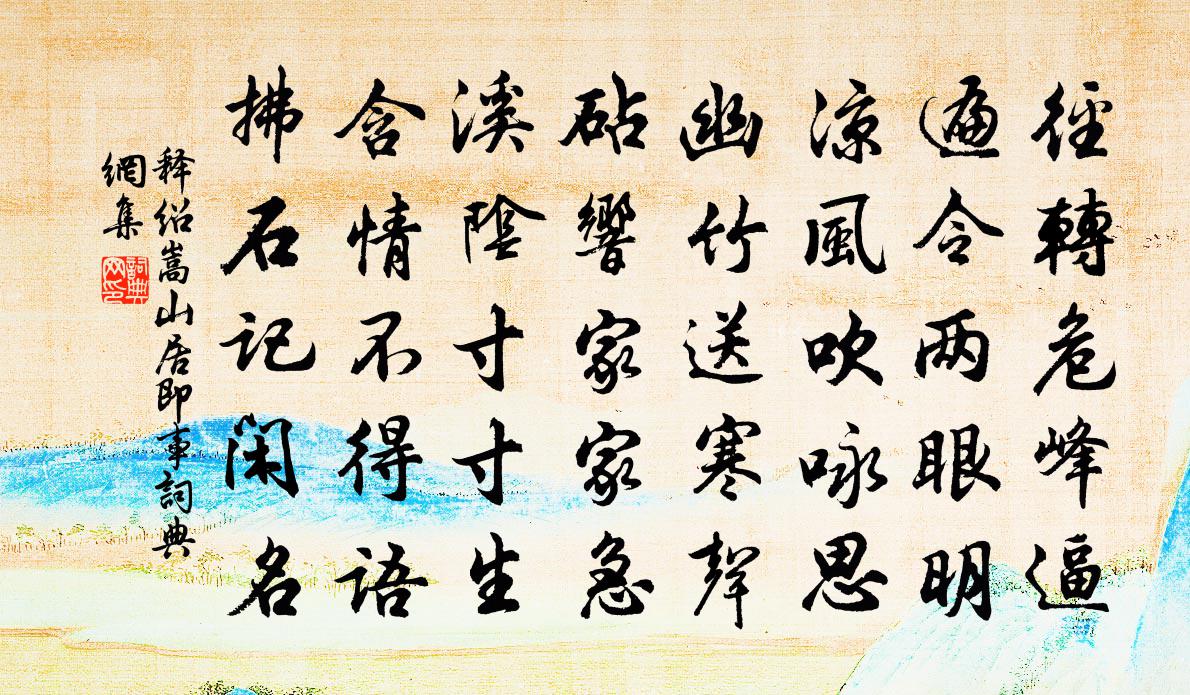 徑轉危峰逼
遍令两眼明
涼風吹咏思
幽竹送寒聲
砧響家家急
溪陰寸寸生
含情不得語
拂石记闲名
释绍嵩山居即事詞典
網集
詞典
网印